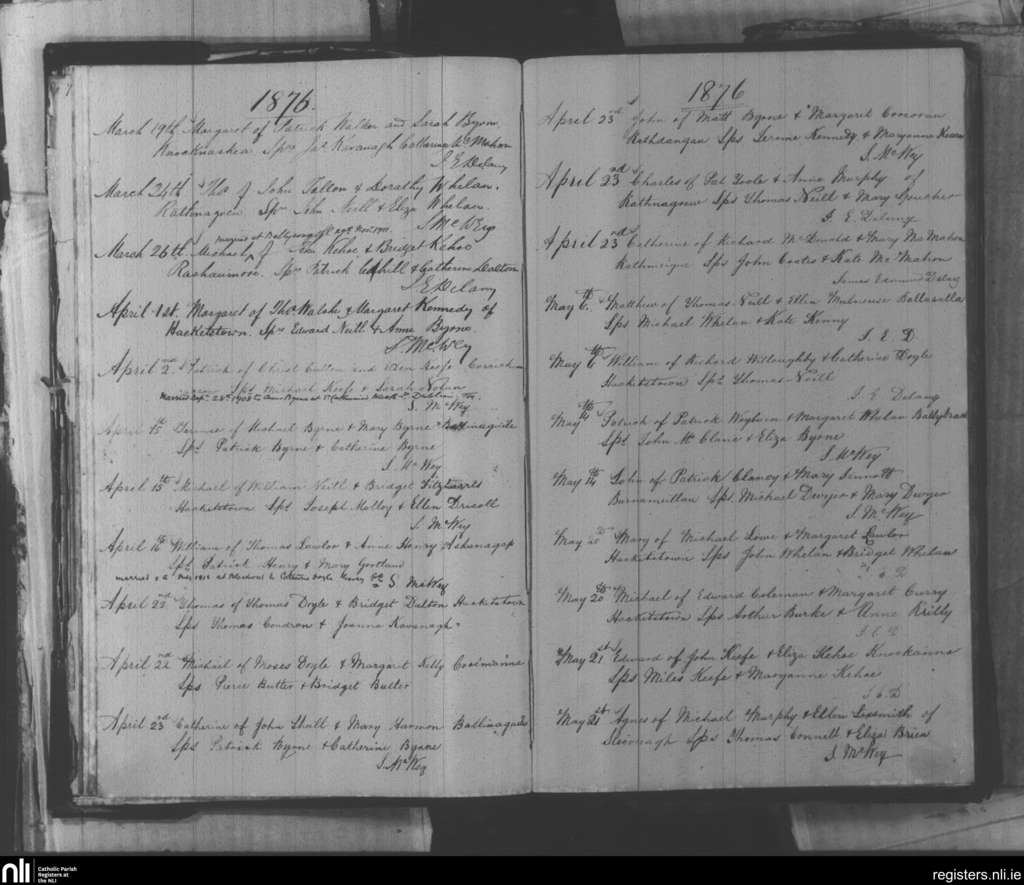 1876.
March 19th Margaret of Patrick Walker and Sarah Byrne
Sprs Jas Kavanagh Catharine McMahon
J E Delany
March 24th Thos of John Tallon & Dorathy Whelan.
Rathnagrew Sprs John Neill & Eliza Whelan.
J McWey
married at
March 26th Michael of Kehoe & Bridget Kehoe
Rashaunmore. Sprs Patrick Cahill & Catherine Dalton
J E Delany
April 1st. Margaret of Thos Walshe & Margaret Kennedy of
Hacketstown. Sprs Edward Neill & Anne Byrne.
J. McWey
April 2nd Patrick of Cullen and Keefe
Sps Michael Keefe & Sarah Nolan
J. McWey
April 15 of Michael Byrne & Mary Byrne Ballinaguilde
Sps Patrick Byrne & Catherine Byrne
J. McWey
April 15th Michael of William Neill & Bridget Fitzharris
Hacketstown Sps Joseph Molloy & Ellen Driscoll
J. McWey
April 16th William of Thomas Lawlor & Anne Henry Askanagap
Sps Patrick Henry & Mary
married J McWey
April 22nd Thomas of Thomas Doyle & Bridget Dalton Hacketstown
Sps Thomas Condron & Joanna Kavanagh
April 22nd Michael of Moses Doyle & Margaret Kelly Coolmanna
Sps Pierce Butler & Bridget Butler
April 23rd Catherine of John & Mary Harmon Ballinaguilde
Sps Patrick Byrne & Catherine Byrne
J. McWey
1876
April 23rd John of Matt Byrne & Margaret Conoran
Rathdangan Sps Kennedy & Maryanne
J. McWey
April 23rd Charles of Pat Toole & Anne Murphy of
Rathnagrew Sps Thomas Neill & Mary
J. E. Delany
April 23rd Catherine of Richard McDonald & Mary McMahon
Sps John Coates & Kate McMahon
James Edmund Delany
May 6th Matthew of Thomas Neill & Ellen
Sps Michael Whelan & Kate Kenny
J. E. D
May 6th William of Richard Willoughby & Catherine Doyle
Hacketstown Sps Thomas Neill
J. E Delany
May 14th Patrick of Patrick & Margaret Whelan
Sps John & Eliza Byrne
J McWey
May 14th John of Patrick Clancy & Mary Sinnott
Sps. Michael Dwyer & Mary Dwyer
J. McWey
May 20 Mary of Michael Lowe & Margaret Lawlor
Hacketstown Sps John Whelan & Bridget Whelan
J. E. D
May 20th Michael of Edward Coleman & Margaret Curry
Hacketstown Sps Arthur Burke & Anne Reilly
J. E. D
May 21st Edward of John Keefe & Eliza Kehoe Knockanna
Sps Miles Keefe & Maryanne Kehoe
J. E. D
May 21st Agnes of Michael Murphy & Ellen Sixsmith of
Slievenagh Sps Thomas Connell & Eliza Brien
J. McWey
nli Catholic Parish
Registers at
the NLI
registers.nli.ie